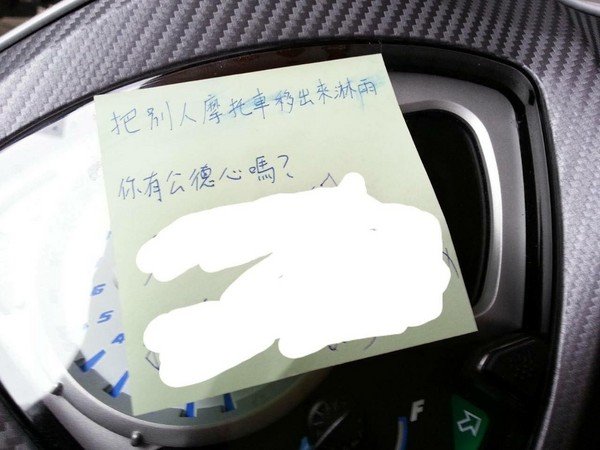 把別人摩托車移出來淋雨
你有公德心嗎？
6
5
4
F